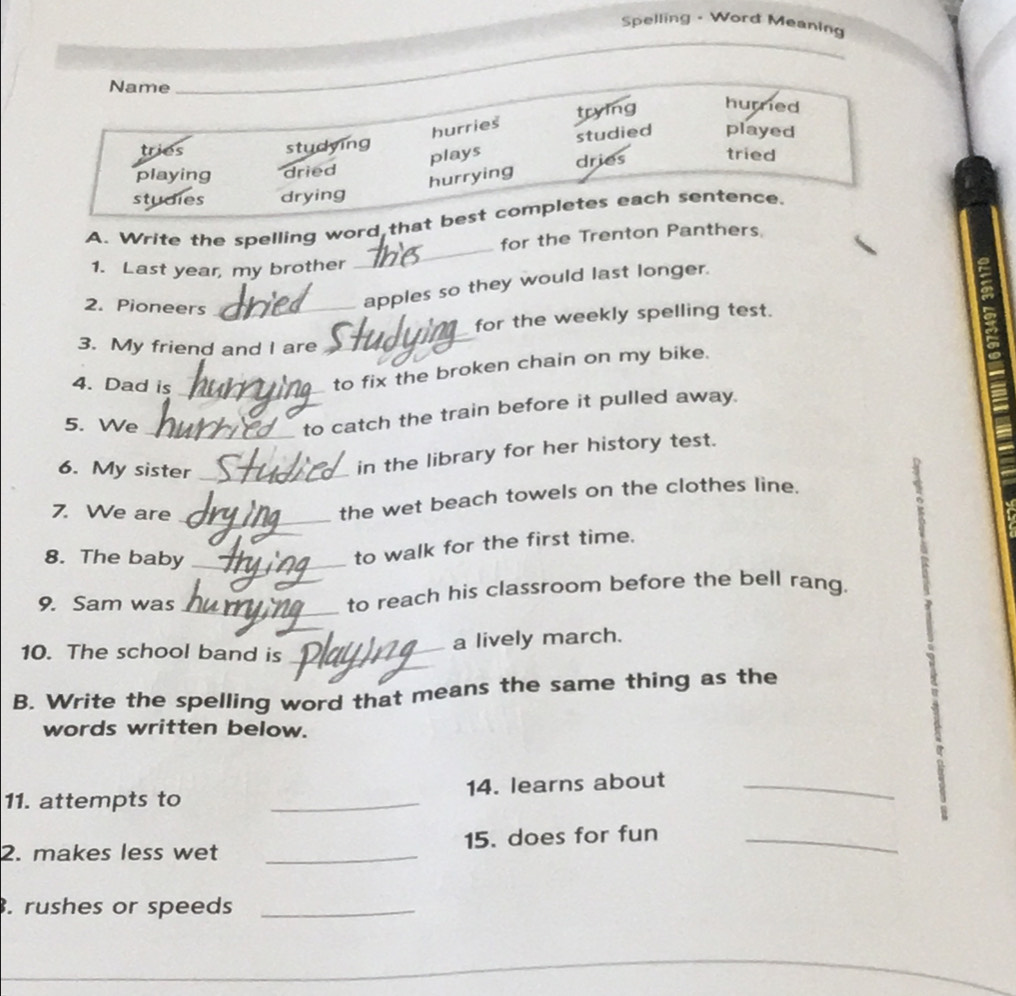 Spelling • Word Meaning
Name
tries studying hurries trying hurried
playing dried plays studied played
studies drying hurrying dries tried
A. Write the spelling word that best completes each sentence.
1. Last year, my brother tries for the Trenton Panthers.
2. Pioneers dried apples so they would last longer.
3. My friend and I are Studying for the weekly spelling test.
4. Dad is hurrying to fix the broken chain on my bike.
5. We hurried to catch the train before it pulled away.
6. My sister Studied in the library for her history test.
7. We are drying the wet beach towels on the clothes line.
8. The baby trying to walk for the first time.
9. Sam was hurrying to reach his classroom before the bell rang.
10. The school band is playing a lively march.
B. Write the spelling word that means the same thing as the
words written below.
11. attempts to
14. learns about
2. makes less wet
15. does for fun
3. rushes or speeds
Copyright © McGraw-Hill Education. Permission is granted to reproduce for classroom use.
6 973497 391170